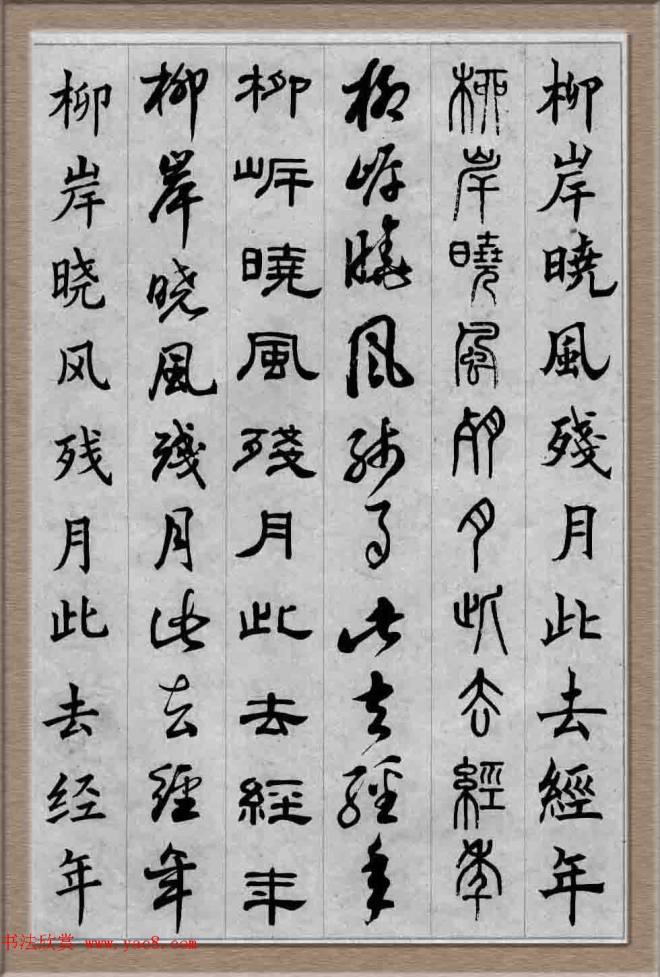 柳岸曉風殘月此去經年
柳岸曉風殘月此去經年
柳岸曉風殘月此去經年
柳岸曉風殘月此去經年
柳岸晓風殘月此去經年
柳岸晓风残月此去经年
书法欣赏 www.yac8.com